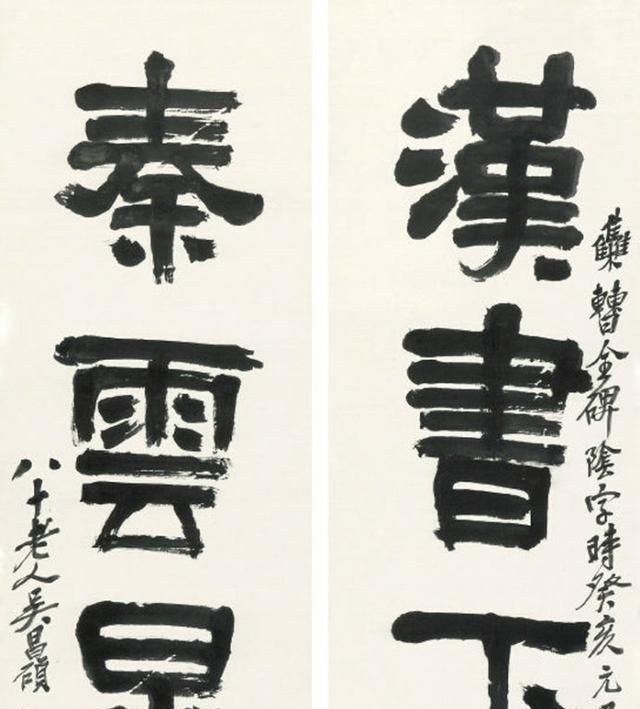 雧曹全碑陰字時癸亥元
漢書下
秦雲
八十老人吳昌碩